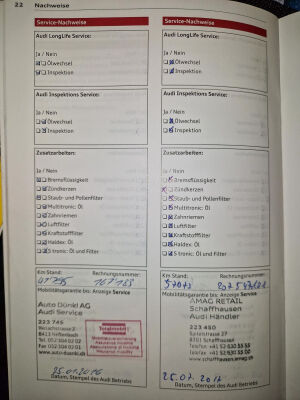 22 Nachweise
Service-Nachweise
Audi LongLife Service:
Ja / Nein
Ölwechsel
Inspektion
Audi Inspektions Service:
Ja / Nein
Ölwechsel
Inspektion
Zusatzarbeiten:
Ja / Nein
Bremsflüssigkeit
Zündkerzen
Staub- und Pollenfilter
Multitronic: Öl
Zahnriemen
Luftfilter
Kraftstofffilter
Haldex: Öl
S tronic: Öl und Filter
Km Stand: Rechnungsnummer:
Mobilitätsgarantie bis: Anzeige Service
Auto Dünki AG
Audi Service
223 745
8413 Neftenbach
www.auto-dunki.ch
Totalmobil!
25.01.2016
Datum, Stempel des Audi Betriebs
Service-Nachweise
Audi LongLife Service:
Ja / Nein
Ölwechsel
Inspektion
Audi Inspektions Service:
Ja / Nein
Ölwechsel
Inspektion
Zusatzarbeiten:
Ja / Nein
Bremsflüssigkeit
Zündkerzen
Staub- und Pollenfilter
Multitronic: Öl
Zahnriemen
Luftfilter
Kraftstofffilter
Haldex: Öl
S tronic: Öl und Filter
Km Stand: Rechnungsnummer:
Mobilitätsgarantie bis: Anzeige Service
AMAG RETAIL
Schaffhausen
Audi Händler
223 450
8201 Schaffhausen
www.schaffhausen.amag.ch
25.07.2017
Datum, Stempel des Audi Betriebs